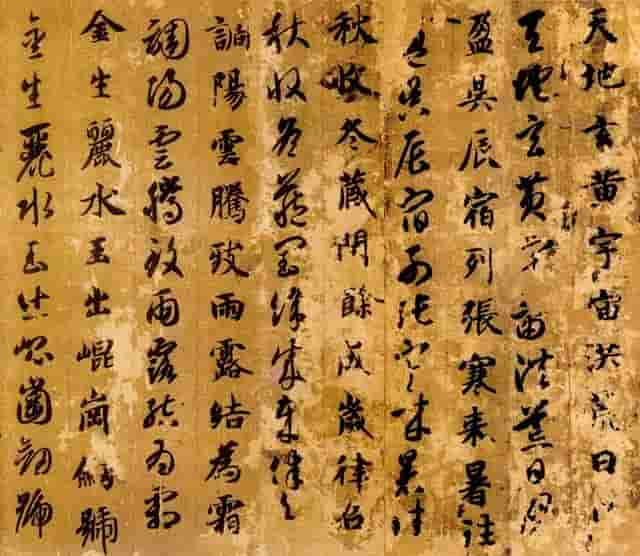 天地玄黄宇宙洪荒日
天地玄黄宙洪荒日
盈昃辰宿列張寒来暑往
盈昃辰宿列張寒来暑往
秋收冬蔵閏餘成歳律召
秋收冬蔵閏餘成歳律召
調陽雲騰致雨露結為霜
調陽雲騰致雨露結為霜
金生麗水玉出崐崗劒號
金生麗水玉出崐崗劒號